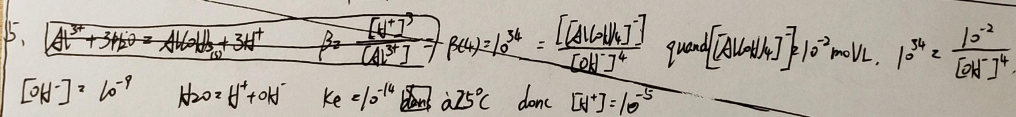 5. Al³⁺ + 3H2O = Al(OH)₃(s) + 3H⁺ β = [H⁺]³ / [Al³⁺] = β(4) = 10³⁴ = [[Al(OH)4]⁻] / [OH⁻]⁴ quand [[Al(OH)4]⁻] = 10⁻² mol/L. 10³⁴ = 10⁻² / [OH⁻]⁴.
[OH⁻] = 10⁻⁹ H2O = H⁺ + OH⁻ Ke = 10⁻¹⁴ dans à 25°C donc [H⁺] = 10⁻⁵